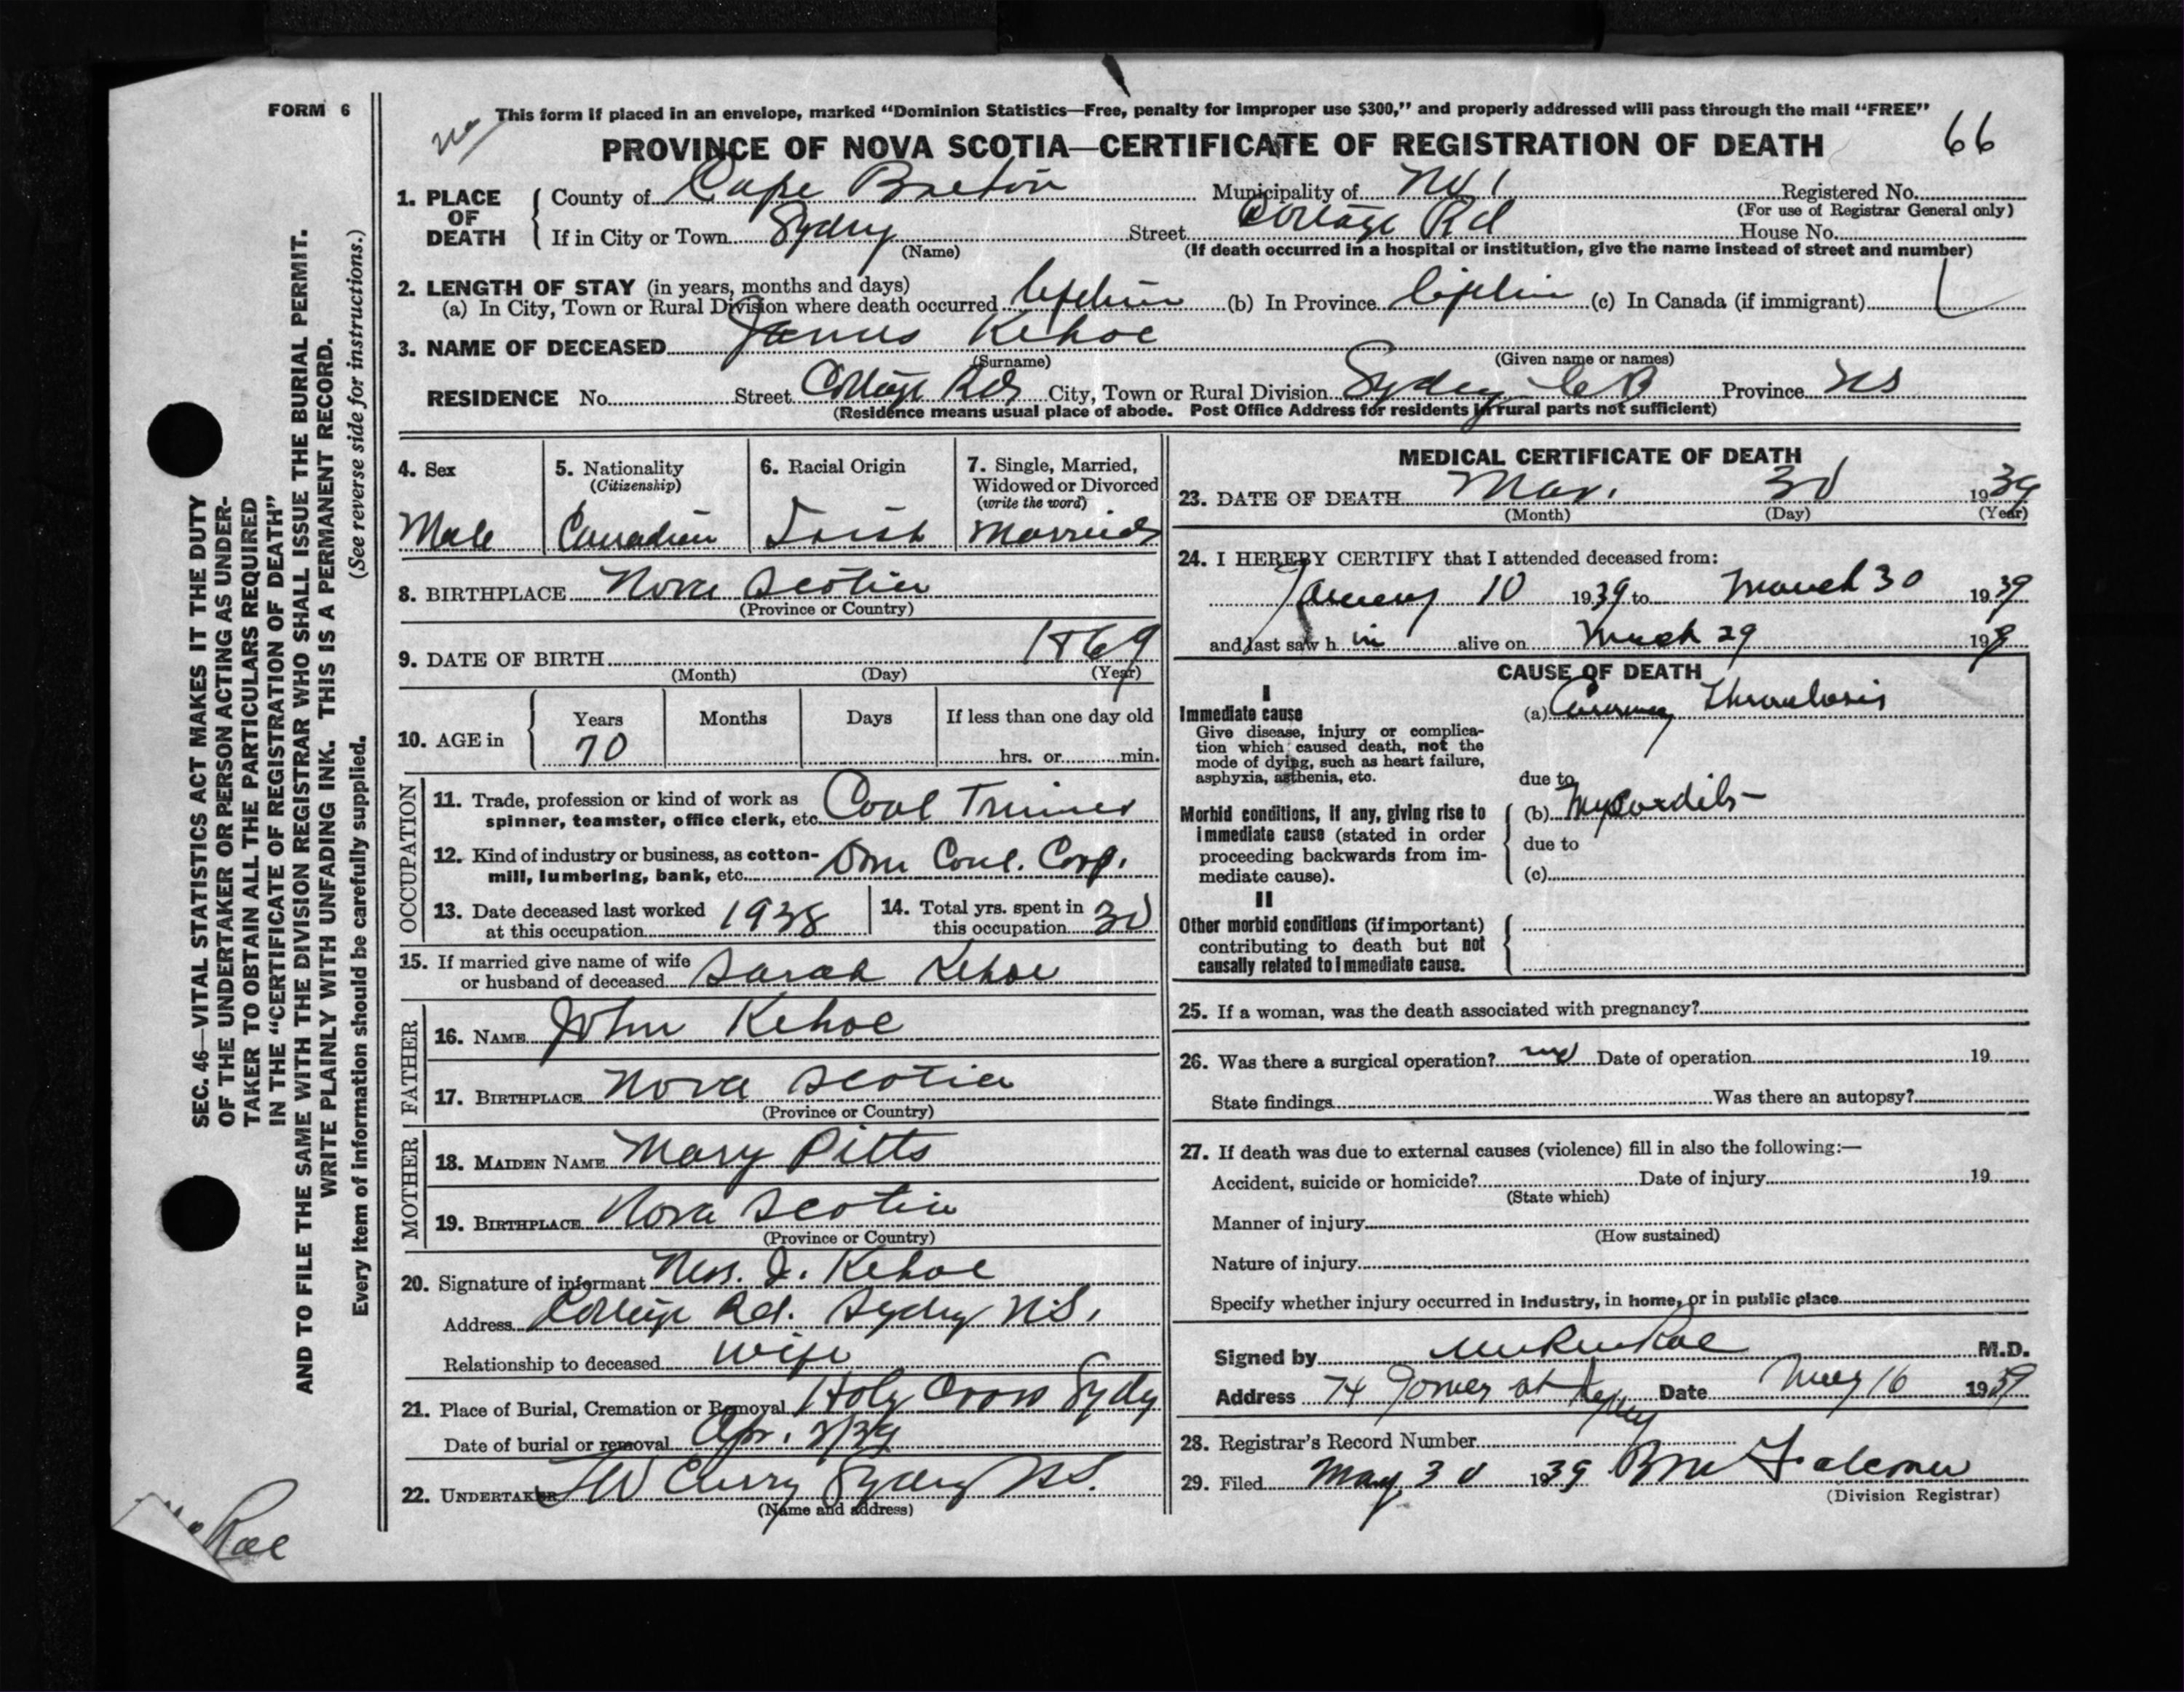 FORM 6
This form if placed in an envelope, marked “Dominion Statistics—Free, penalty for improper use $300,” and properly addressed will pass through the mail “FREE”
66
PROVINCE OF NOVA SCOTIA—CERTIFICATE OF REGISTRATION OF DEATH
1. PLACE OF DEATH
County of Cape Breton Municipality of No 1 Registered No.
(For use of Registrar General only)
If in City or Town Sydney Street Cottage Rd House No.
(Name) (If death occurred in a hospital or institution, give the name instead of street and number)
2. LENGTH OF STAY (in years, months and days)
(a) In City, Town or Rural Division where death occurred Lifetime (b) In Province Lifetime (c) In Canada (if immigrant)
3. NAME OF DECEASED James Kehoe
(Surname) (Given name or names)
RESIDENCE No. Street Cottage Rd City, Town or Rural Division Sydney C B Province NS
(Residence means usual place of abode. Post Office Address for residents in rural parts not sufficient)
4. Sex
Male
5. Nationality
(Citizenship)
Canadian
6. Racial Origin
Irish
7. Single, Married,
Widowed or Divorced
(write the word)
Married
8. BIRTHPLACE Nova Scotia
(Province or Country)
9. DATE OF BIRTH 1869
(Month) (Day) (Year)
10. AGE in
Years Months Days If less than one day old
70 hrs. or min.
OCCUPATION
11. Trade, profession or kind of work as Coal Trimer
spinner, teamster, office clerk, etc.
12. Kind of industry or business, as cotton- Dom Coal. Corp.
mill, lumbering, bank, etc.
13. Date deceased last worked 1938
at this occupation
14. Total yrs. spent in 30
this occupation
15. If married give name of wife
or husband of deceased Sarah Kehoe
FATHER
16. NAME John Kehoe
17. BIRTHPLACE Nova Scotia
(Province or Country)
MOTHER
18. MAIDEN NAME Mary Pitts
19. BIRTHPLACE Nova Scotia
(Province or Country)
20. Signature of informant Mrs. J. Kehoe
Address Rd. Sydney N.S.
Relationship to deceased Wife
21. Place of Burial, Cremation or Removal Holy Cross Sydney
Date of burial or removal Apr. 2/39
22. UNDERTAKER Curry Sydney N.S.
(Name and address)
MEDICAL CERTIFICATE OF DEATH
23. DATE OF DEATH Mar. 30 1939
(Month) (Day) (Year)
24. I HEREBY CERTIFY that I attended deceased from:
January 10 1939 to March 30 1939
and last saw h im alive on March 29 199
CAUSE OF DEATH
I
Immediate cause
Give disease, injury or complica-
tion which caused death, not the
mode of dying, such as heart failure,
asphyxia, asthenia, etc.
(a) Coronary Thrombosis
due to
Morbid conditions, if any, giving rise to
immediate cause (stated in order
proceeding backwards from im-
mediate cause).
(b) Myocarditis
due to
(c)
II
Other morbid conditions (if important)
contributing to death but not
causally related to immediate cause.
25. If a woman, was the death associated with pregnancy?
26. Was there a surgical operation? no Date of operation 19
State findings Was there an autopsy?
27. If death was due to external causes (violence) fill in also the following:—
Accident, suicide or homicide? Date of injury 19
(State which)
Manner of injury
(How sustained)
Nature of injury
Specify whether injury occurred in industry, in home, or in public place
Signed by M.D.
Address 74 St Sydney Date May 16 1939
28. Registrar's Record Number
29. Filed May 30 1939
(Division Registrar)
SEC. 46—VITAL STATISTICS ACT MAKES IT THE DUTY
OF THE UNDERTAKER OR PERSON ACTING AS UNDER-
TAKER TO OBTAIN ALL THE PARTICULARS REQUIRED
IN THE “CERTIFICATE OF REGISTRATION OF DEATH”
AND TO FILE THE SAME WITH THE DIVISION REGISTRAR WHO SHALL ISSUE THE BURIAL PERMIT.
WRITE PLAINLY WITH UNFADING INK. THIS IS A PERMANENT RECORD.
Every item of information should be carefully supplied. (See reverse side for instructions.)
Rae